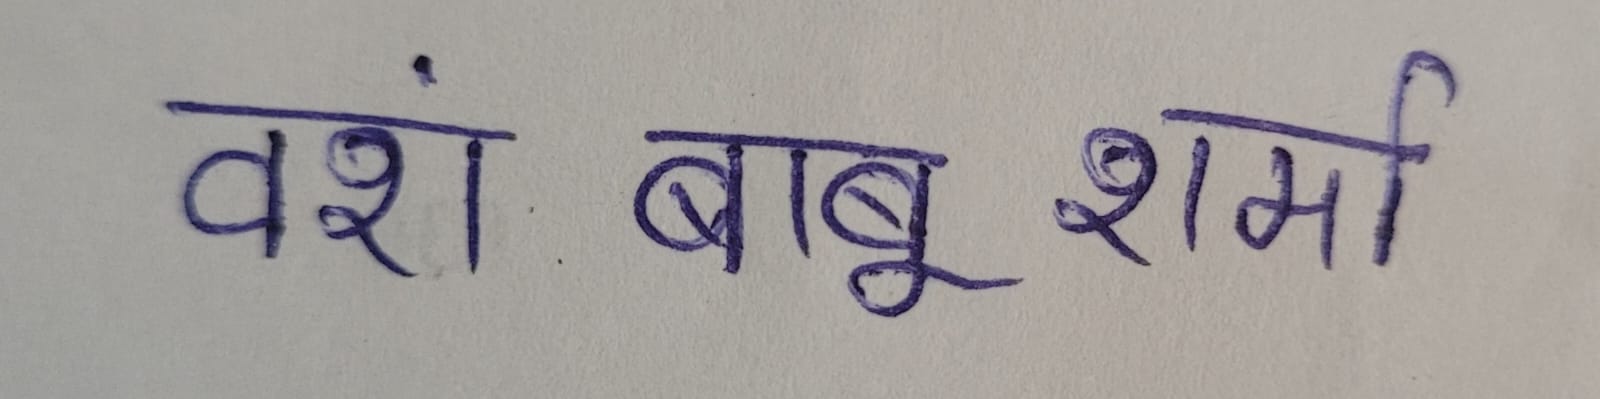 वशं बाबू शर्मा